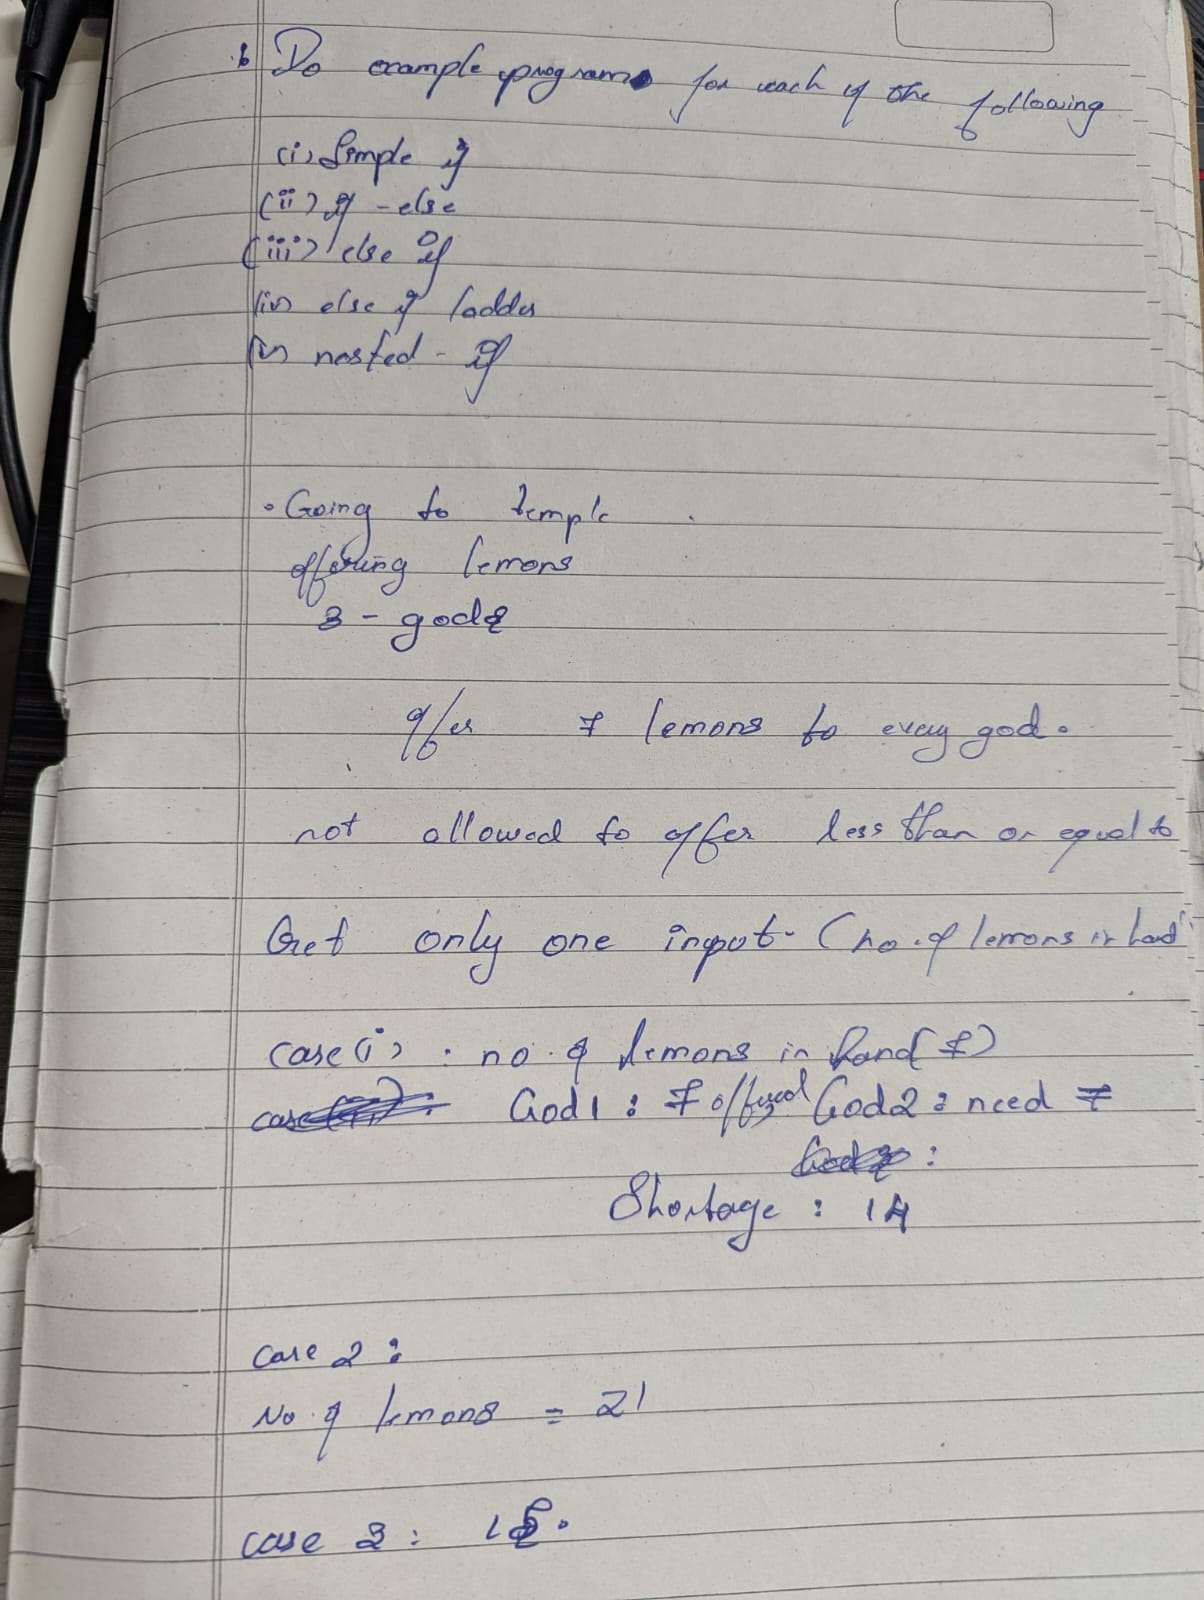 Do example programs for each of the following
(i) Simple if
(ii) if - else
(iii) else if
(iv) else if ladder
(v) nested - if
• Going to temple
offering lemons
3 - gods
offer 7 lemons to every god.
not allowed to offer less than or equal to
Get only one input - (no. of lemons in hand)
case(i) : no. of lemons in hand(7)
God1 : 7 offered God2 : need 7
Shortage : 14
case 2 :
No. of lemons = 21
case 3 :